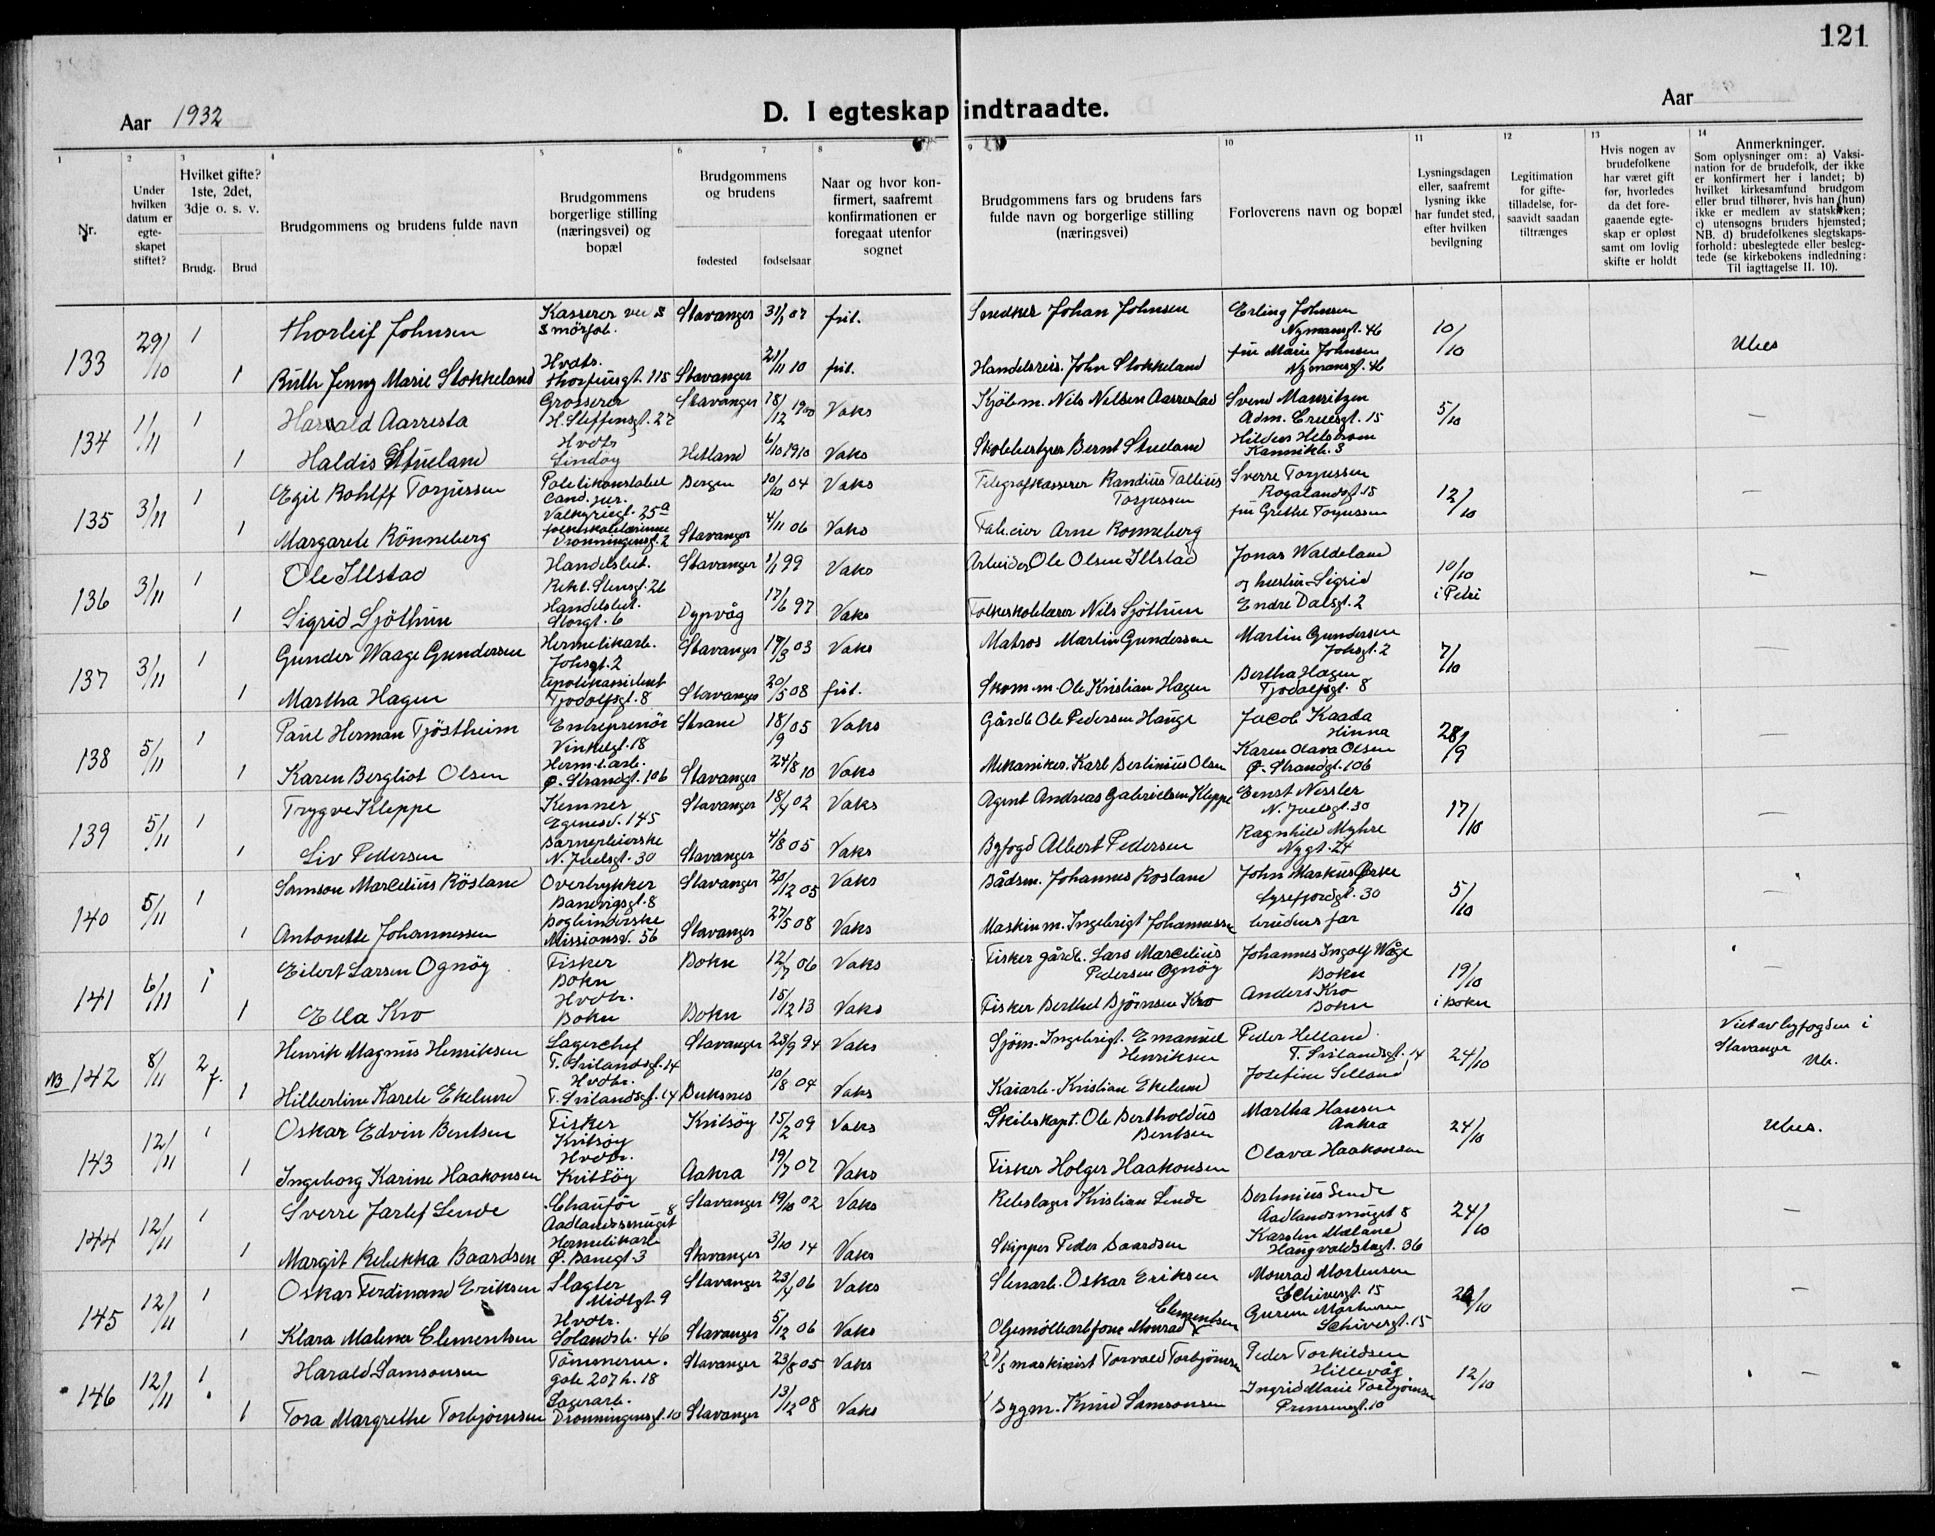 121
Aar 1932
D. I egteskap indtraadte.
Aar
1
2
3
4
5
6
7
8
9
10
11
12
13
14
Nr.
Under hvilken datum er egte-skapet stiftet?
Hvilket gifte? 1ste, 2det, 3dje o. s. v.
Brudg.
Brud
Brudgommens og brudens fulde navn
Brudgommens borgerlige stilling (næringsvei) og bopæl
Brudgommens og brudens
fødested
fødselsaar
Naar og hvor kon-firmert, saafremt konfirmationen er foregaat utenfor sognet
Brudgommens fars og brudens fars fulde navn og borgerlige stilling (næringsvei)
Forloverens navn og bopæl
Lysningsdagen eller, saafremt lysning ikke har fundet sted, efter hvilken bevilgning
Legitimation for gifte-tilladelse, for-saavidt saadan tiltrænges
Hvis nogen av brudefolkene har været gift før, hvorledes da det fore-gaaende egte-skap er opløst samt om lovlig skifte er holdt
Anmerkninger.
Som oplysninger om: a) Vaksi-nation for de brudefolk, der ikke er konfirmert her i landet; b) hvilket kirkesamfund brudgom eller brud tilhører, hvis han (hun) ikke er medlem av statskirken; c) utensogns bruders hjemsted; NB. d) brudefolkenes slegtskaps-forhold: ubeslegtede eller besleg-tede (se kirkebokens indledning: Til iagttagelse II. 10).
133 29/10 1 Thorleif Johnsen Kasserer ved S Smörfab. Stavanger 31/1 07 frit. Snedker Johan Johnsen Erling Johnsen Nymansgt. 46 10/10 Ubes
1 Ruth Jenny Marie Stokkeland Hvdtr. Thorfinsgt. 118 Stavanger 21/11 10 frit. Handelsreis. John Stokkeland fru Marie Johnsen Nymansgt. 46
134 1/11 1 Harald Aarresta Grosserer H. Steffensgt. 27 Stavanger 18/12 1900 Vaks Kjöbm. Nils Nilsen Aarrestad Svend Mauritzen Adm. Cruesgt. 15 5/10 —
1 Haldis Stueland Hvdtr Lindöy Hetland 6/10 1910 Vaks Skolebestyrer Bernt Stueland Kannikb. 3
135 3/11 1 Egil Rohlff Torjussen Politikonstabel Cand. jur. Valkyriegt. 25a Bergen 10/10 04 Vaks Telegrafkasserer Randius Tallius Torjussen Sverre Torjussen Rogalandsgt. 15 12/10 —
1 Margarete Rönneberg folkeskolelærerinne Dronningensgt. 2 Stavanger 4/11 06 Vaks Fab.eier Arne Ronneberg fru Grethe Torjussen
136 3/11 1 Ole Illstad Handelsbet. Rekt. Stensgt. 26 Stavanger 1/1 99 Vaks Arbeider Ole Olsen Illstad Jonas Waldeland 10/10 i Petri —
1 Sigrid Sjöthun Handelsbet. Storgt. 6 Dypvåg 17/6 97 Vaks Folkeskolelærer Nils Sjöthun og hustru Sigrid Endre Dalsgt. 2
137 3/11 1 Gunder Waage Gundersen Hermetikarb. Johsgt. 2 Stavanger 17/3 03 Vaks Matros Martin Gundersen Martin Gundersen Johsgt. 2 7/10 —
1 Martha Hagen Apotekassistent Tjodolfsgt. 8 Stavanger 20/5 08 frit. Skom.m. Ole Kristian Hagen Bertha Hagen Tjodolfsgt. 8
138 5/11 1 Paul Herman Tjöstheim Entreprenör Vinkelgt. 18 Strand 18/9 05 Vaks Gårdb Ole Pedersen Hauge Jacob Kaada Hinna 28/9 —
1 Karen Bergliot Olsen Hermt.arb. Ø. Strandgt. 106 Stavanger 24/8 10 Vaks Mekaniker. Karl Bertinius Olsen Karen Olava Olsen Ø. Strandgt. 106
139 5/11 1 Trygve Kleppe Kemner Egenesv. 145 Stavanger 18/4 02 Vaks Agent Andreas Gabrielsen Kleppe Ernst Nessler N. Juelsgt. 30 17/10 —
1 Liv Pedersen Barnepleierske N. Juelsgt. 30 Stavanger 4/8 05 Vaks Byfogd Albert Pedersen Ragnhild Myhre Nygt. 24
140 5/11 1 Samson Marcelius Rösland Overtrykker Banevigsgt. 8 Stavanger 20/12 05 Vaks Bådsm. Johannes Rosland John Markus Ørke Lysefjordgt. 30 5/10 —
1 Antonette Johannessen Bogbinderske Missionsv. 56 Stavanger 27/5 08 Vaks Maskinm. Ingebrigt Johannessen brudens far
141 6/11 1 Eilert Larsen Ognöy Fisker Bokn Bokn 12/7 06 Vaks Fisker gårdb. Lars Marcelius Pedersen Ognöy Johannes Ingolf Våge Bokn 19/10 i Bokn —
1 Ella Kro Hvdtr. Bokn Bokn 15/12 13 Vaks Fisker Berthel Bjørnsen Kro Anders Kro Bokn
NB 142 8/11 2 f. Henrik Magnus Henriksen Lagerchef T. Svilandsgt. 14 Stavanger 23/9 94 Vaks Sjöm. Ingebrigt. Emanuel Henriksen Peder Helland T. Svilandsgt. 14 24/10 Viet av byfogden i Stavanger Ub.
1 Hilbertine Karete Ekelund Hvdtr. T. Svilandsgt. 14 Buksnes 10/8 04 Vaks Kaiarb. Kristian Ekelund Josefine Selland
143 12/11 1 Oskar Edvin Bentsen Fisker Kvitsöy Kvitsöy 15/2 09 Vaks Skibskapt. Ole Bertholdus Bentsen Martha Hansen Aakra 24/10 Ubes.
1 Ingeborg Karine Haakonsen Hvdtr. Kvitsöy Aakra 19/7 07 Vaks Fisker Holger Haakonsen Olava Haakonsen
144 12/11 1 Sverre Jarlef Lende Chaufför Aadlandssmuget 8 Stavanger 19/10 02 Vaks Rebslager Kristian Lende Bertinius Lende Aadlandsmuget 8 24/10 —
1 Margit Rebekka Baardsen Hermetikarb Ø. Banegt. 3 Stavanger 3/10 14 Vaks Skipper Peder Baardsen Karsten Maland Haugvaldstagt. 36
145 12/11 1 Oskar Ferdinand Eriksen Slagter Midtgt. 9 Stavanger 23/4 06 Vaks Stenarb. Oskar Eriksen Monrad Mortensen Schiversgt. 15 24/10 —
1 Klara Malena Clementsen Hvdtr. Solandsb. 46 Stavanger 5/12 06 Vaks Oljemöllearb Jone Monrad Clementsen Schiversgt. 15
146 12/11 1 Harald Samsonsen Tömmerm. gate 207 h. 18 Stavanger 23/8 05 Vaks D/S maskinist Torvald Torbjörnsen Peder Torkildsen Hillevåg 12/10 —
1 Tora Margrethe Torbjørnsen Lagerarb. Dronningensgt. 10 Stavanger 13/12 08 Vaks Bygm. Knud Samsonsen Ingrid Marie Torbjörnsen Prinsensgt. 10